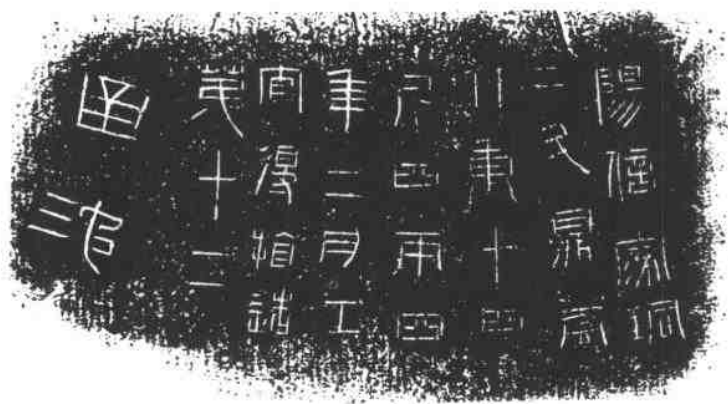 陽信家銅
二斗鼎蓋
并重十四
斤四兩四
年二月工
官得
第十二
函池